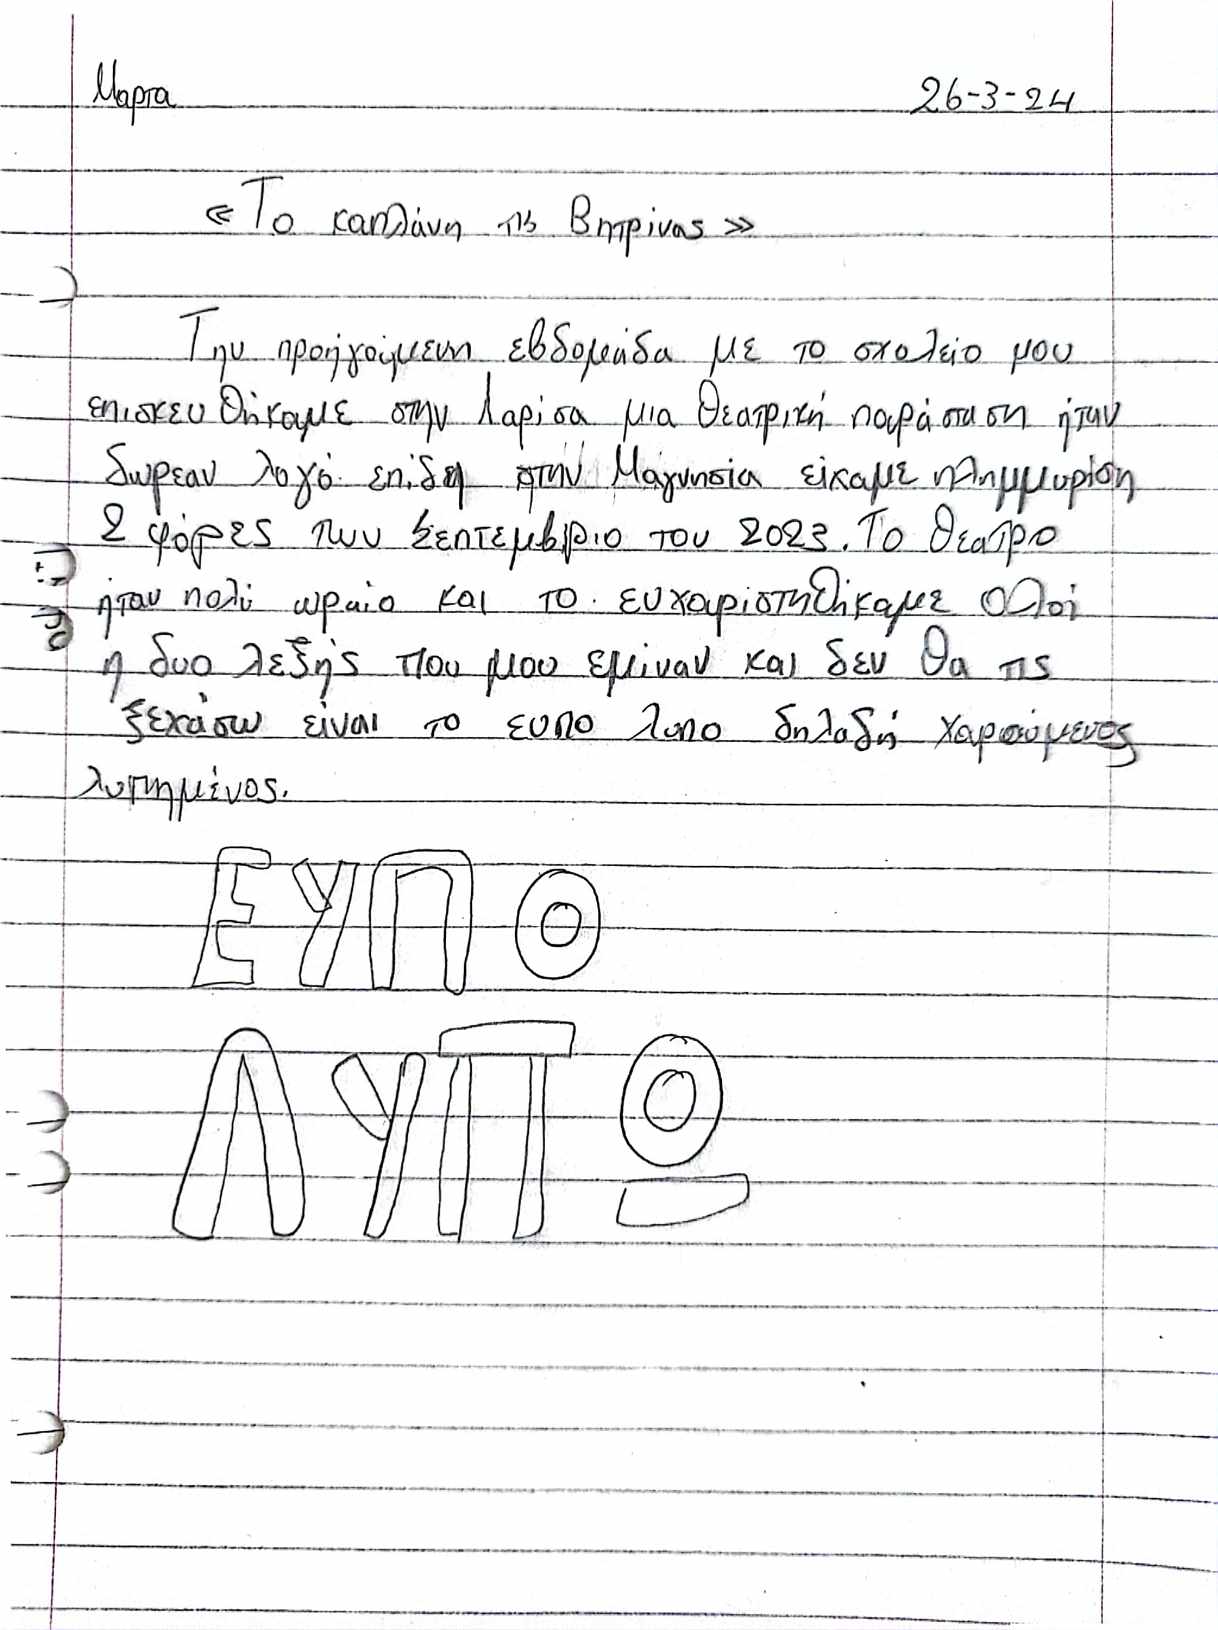 Μαρτα 26-3-24
«Το καπλάνη της Βητρίνας»
Την προήγούμενη εβδομάδα με το σχολείο μου
επισκευθήκαμε στην Λαρίσα μια θεατρική παράσταση ήταν
δωρεαν λογό επίδη στην Μαγνησία είχαμε πλημμυρίση
2 φόρες τον Σεπτεμβριο του 2023. Το θεατρο
ήταν πολύ ωραίο και το ευχαριστηθήκαμε ολοί
η δυο λεξής που μου εμίναν και δεν θα τις
ξεχάσω είναι το ευπο λυπο δηλαδή χαρούμενος
λυπημένος.
ΕΥΠΟ
ΛΥΠΟ